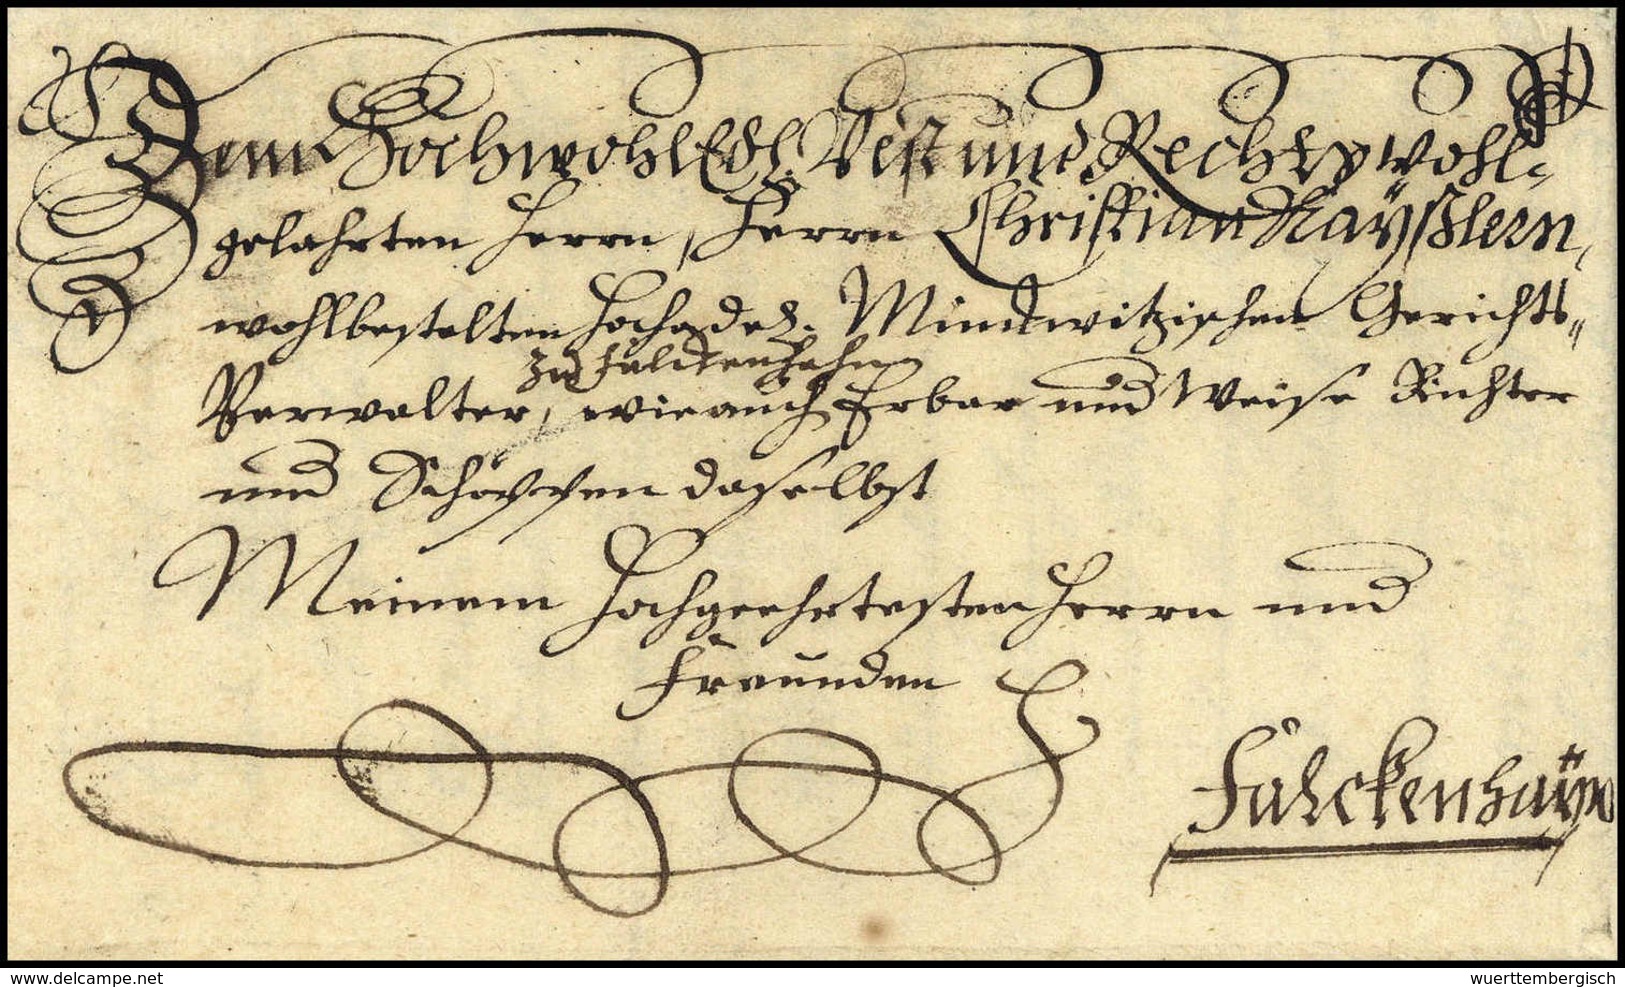 Dem HochwohlEdl. Vest und Rechtswohl=
gelahrten Herrn, Herrn Christian Nayßlern,
wohlbestalten Hochadel. Minckwitzischen Gerichts=
zu Falckenhahn
Verwalter, wie auch Erbar und Weise Richter
und Schöppen daselbst
Meinem Hochgeehrtesten Herrn und
Freunden
Falckenhaÿn
www.delcampe.net
wuerttembergisch